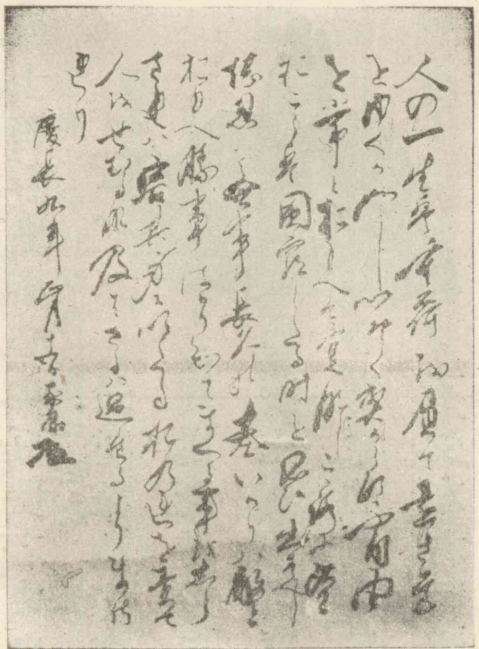 人の一生は重荷を負て遠き道
をゆくが如し いそぐべからず 不自由
を常とおもへば不足なし こころに望
おこらば困窮したる時を思ひ出すべし
堪忍は無事長久の基 いかりは敵と
おもへ 勝事ばかり知てまくる事をしら
ざれば害其身にいたる おのれを責て
人をせむるな 及ばざるは過たるよりまさ
れり
慶長九年 正月十五日 家康